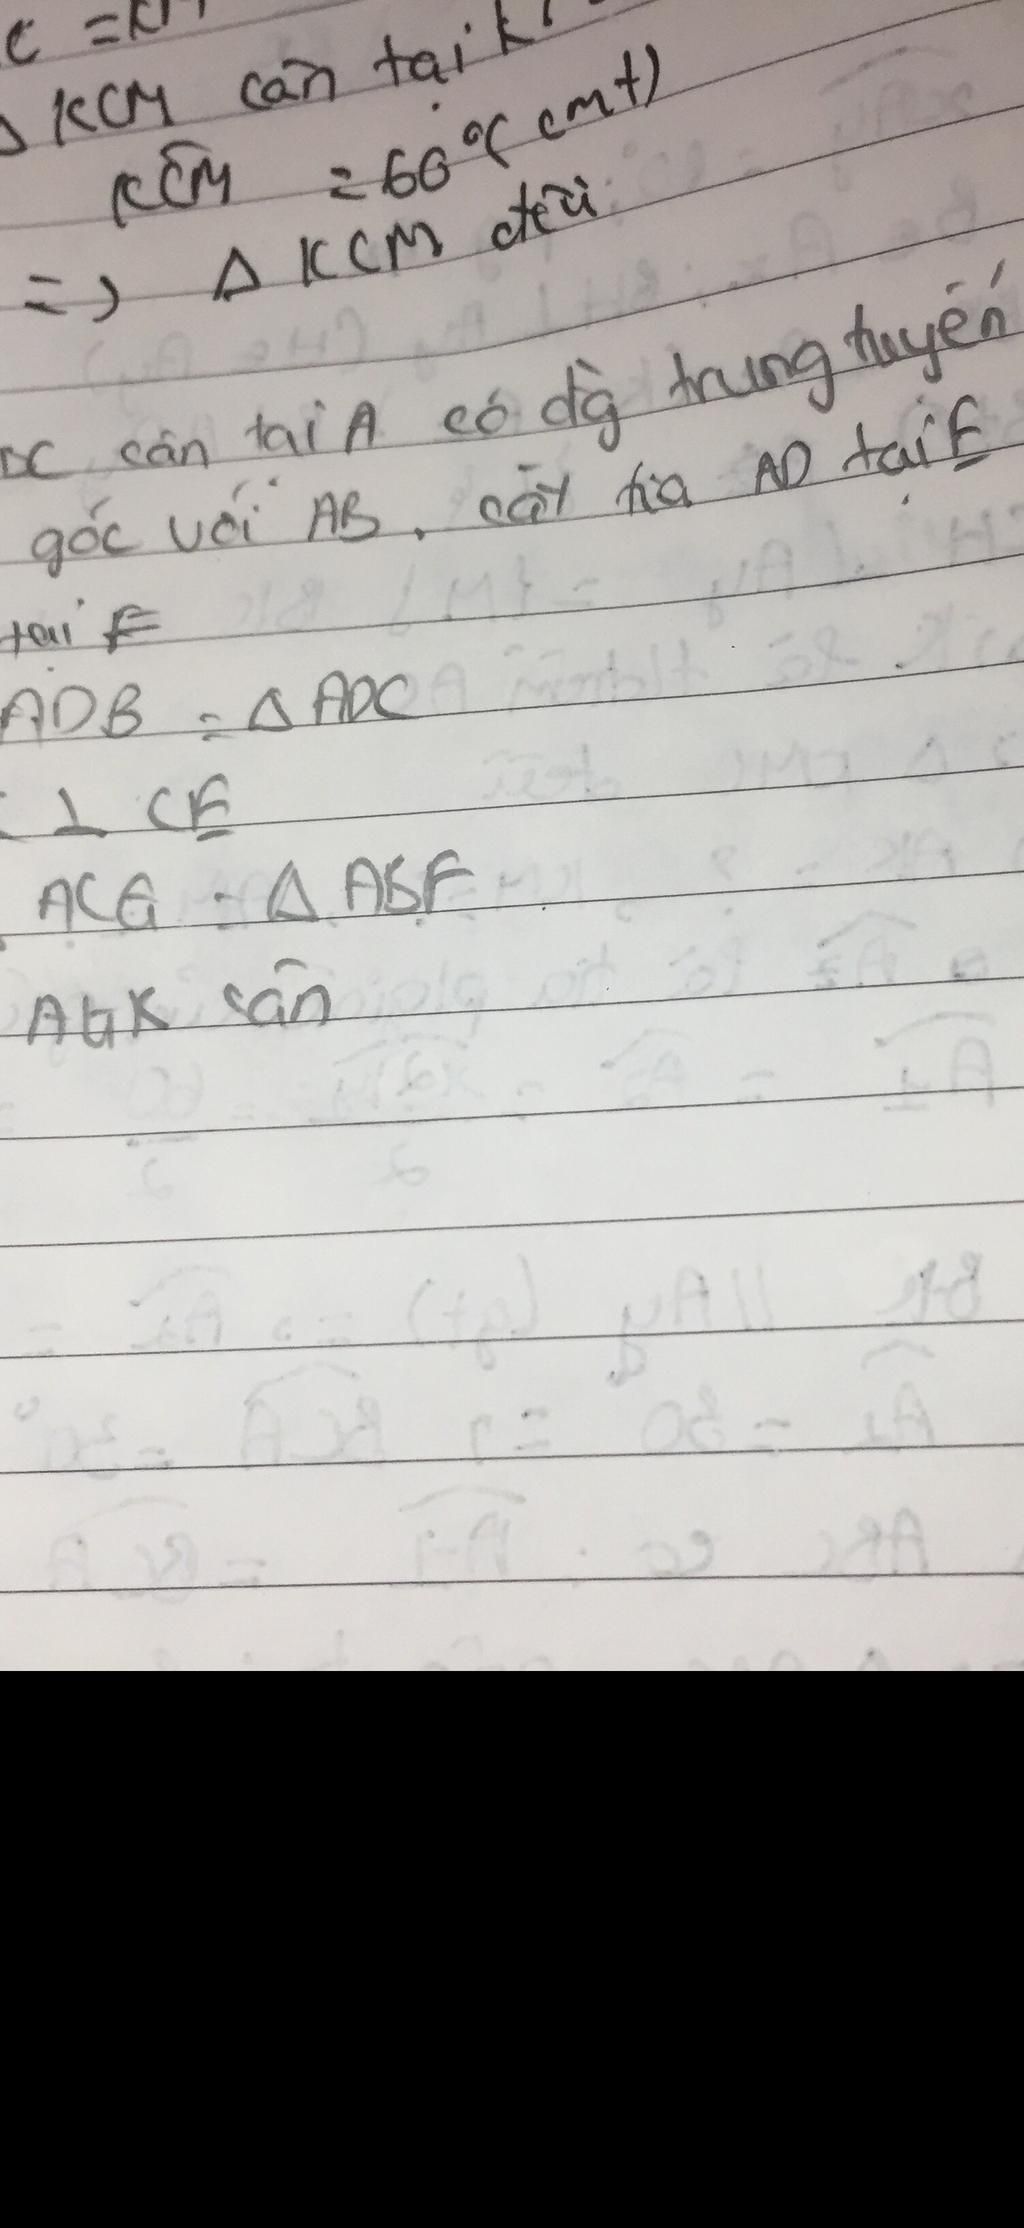 C = KM
Δ KCM cân tại K
KCM = 60° (cmt)
=> Δ KCM đều
BC cân tại A có đg trung tuyến
góc với AB, cắt tia AD tại E
tại F
ADB = Δ ADC
⊥ CE
ACG = Δ ABF
AGK cân